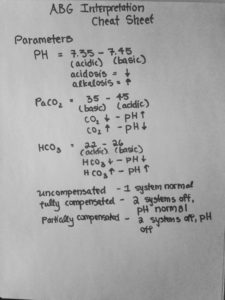 ABG Interpretation
Cheat Sheet
Parameters
PH = 7.35 - 7.45
(acidic) (basic)
acidosis = ↓
alkalosis = ↑
PaCO₂ = 35 - 45
(basic) (acidic)
CO₂ ↓ - pH ↑
CO₂ ↑ - pH ↓
HCO₃ = 22 - 26
(acidic) (basic)
HCO₃ ↓ - pH ↓
HCO₃ ↑ - pH ↑
uncompensated - 1 system normal
fully compensated - 2 systems off,
pH normal
Partially compensated - 2 systems off, pH
off